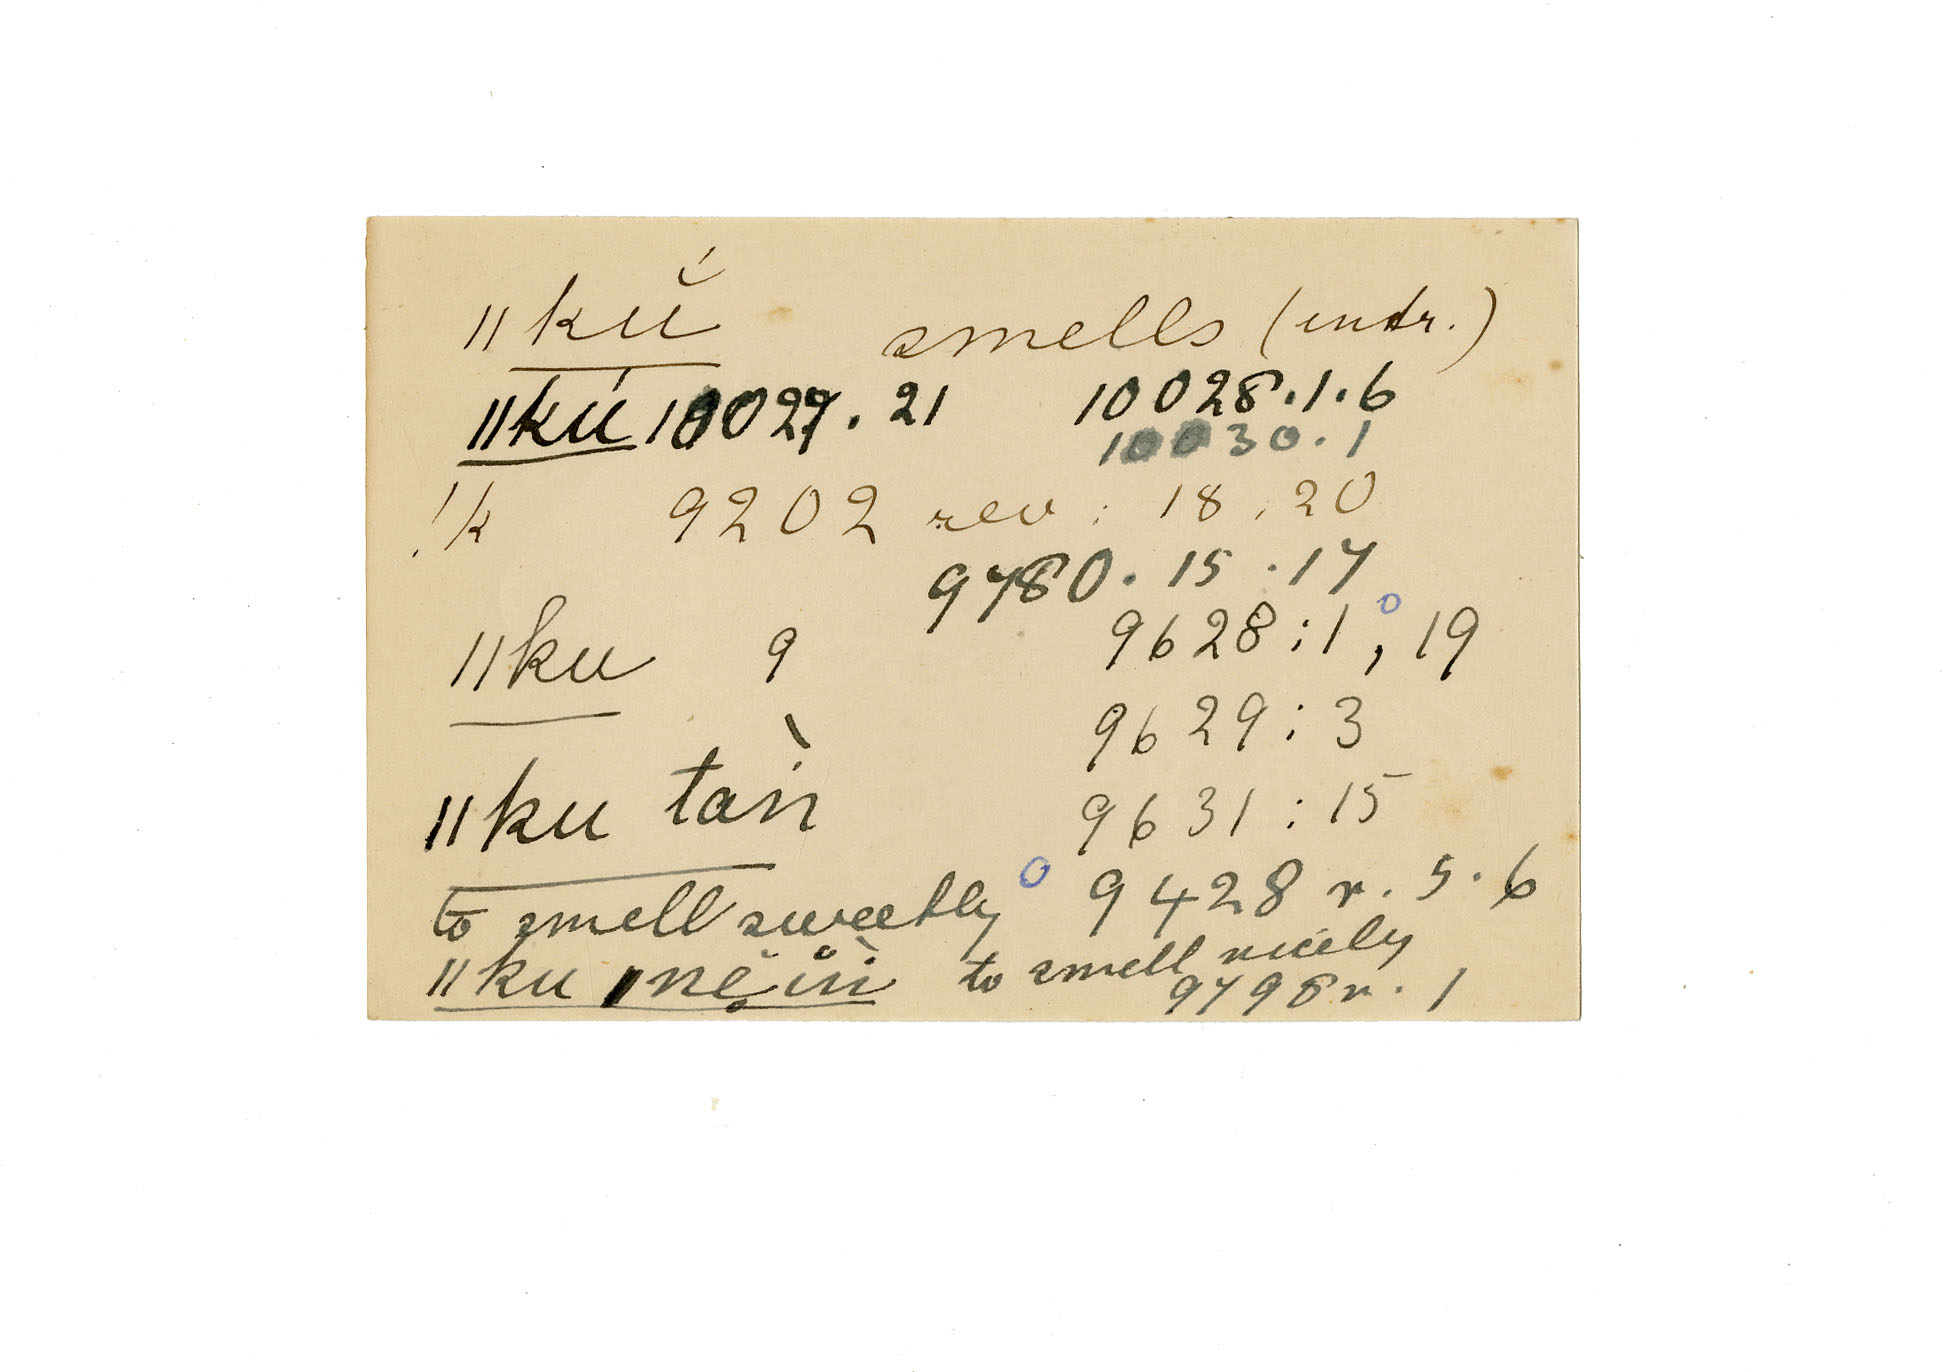 ǁkŭ́ smells (intr.)
ǁkú 10027.21 10028.1.6
10030.1
!k 9202 rev: 18, 20
9780.15.17
ǁku 9 9628:1, 19
9629:3
ǁku taǹ 9631:15
to smell sweetly 9428 r. 5.6
ǁku to smell nicely
9798 r. 1